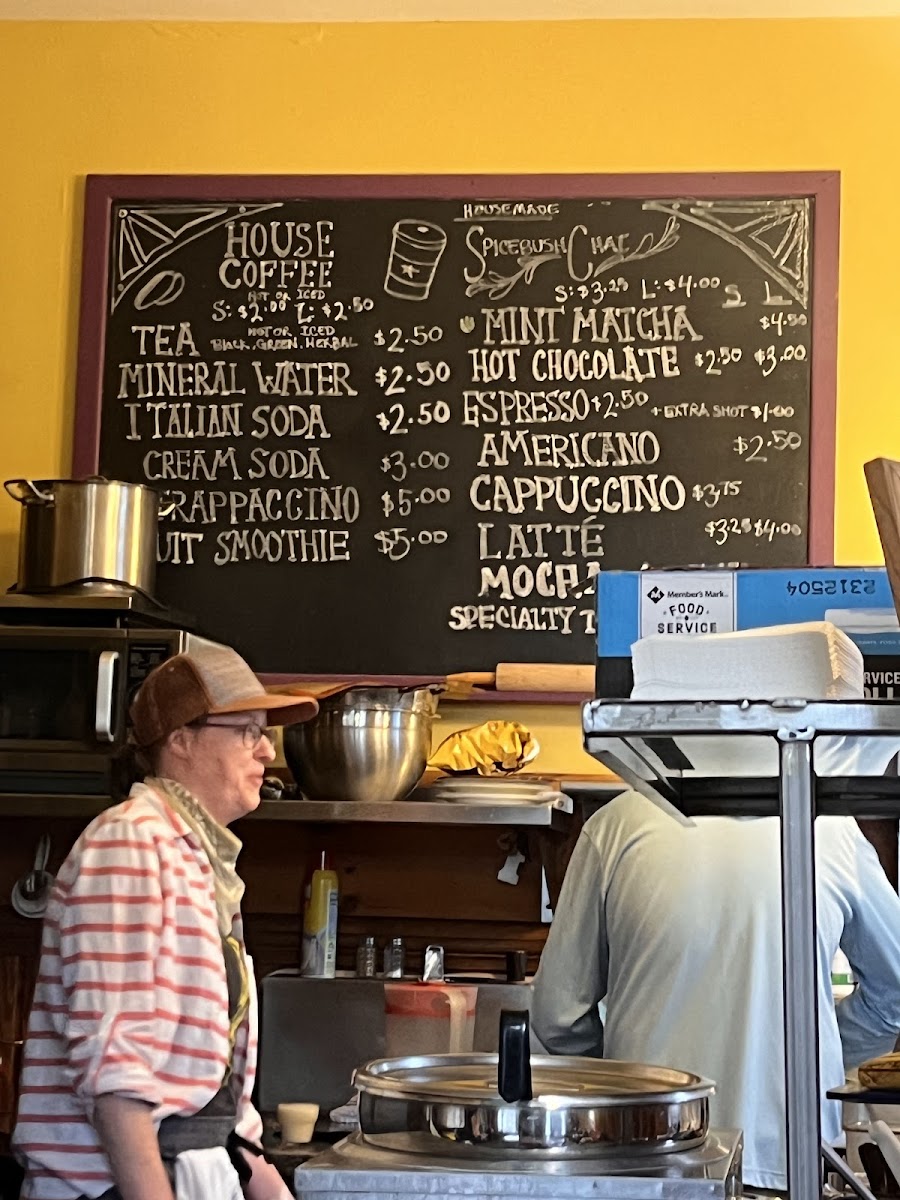 HOUSE
COFFEE
HOT OR ICED
S: $2.00 L: $2.50
TEA HOT OR ICED
BLACK, GREEN, HERBAL $2.50
MINERAL WATER $2.50
ITALIAN SODA $2.50
CREAM SODA $3.00
FRAPPACCINO $5.00
UIT SMOOTHIE $5.00
HOUSEMADE
SPICEBUSH CHAI
S: $3.25 L: $4.00
S L
MINT MATCHA $4.50
HOT CHOCOLATE $2.50 $3.00
ESPRESSO $2.50 + EXTRA SHOT $1.00
AMERICANO $2.50
CAPPUCCINO $3.75
LATTÉ $3.25 $4.00
MOCHA
SPECIALTY
Member's Mark
FOOD
SERVICE
2312504